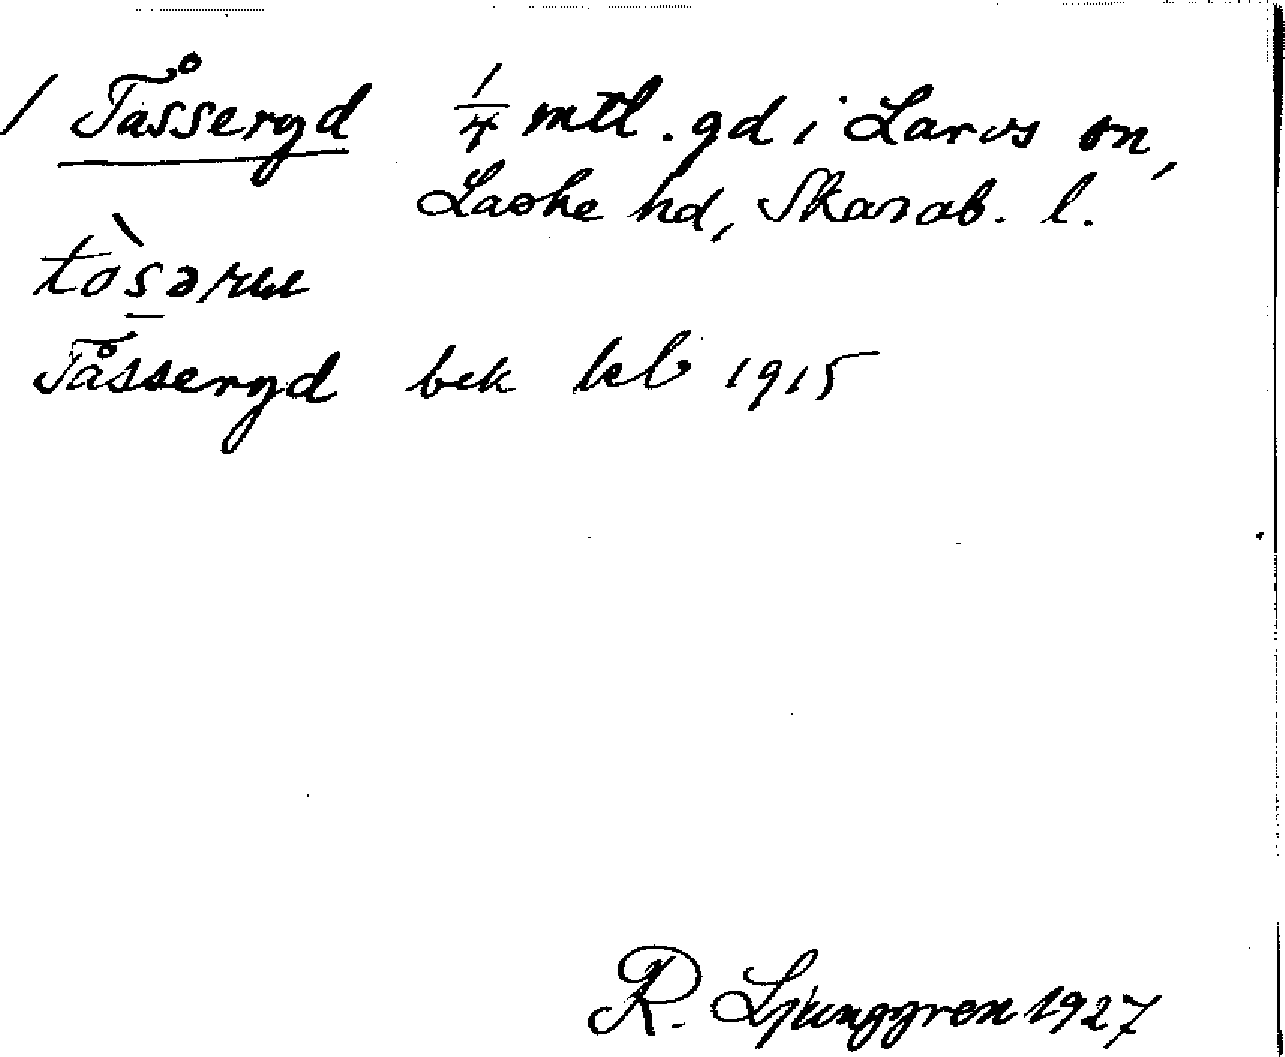 / Tåsseryd 1/4 mtl. gd i Larvs sn,
Laske hd, Skarab. l.
Tåsseryd bek kb 1915
R. Ljunggren 1927